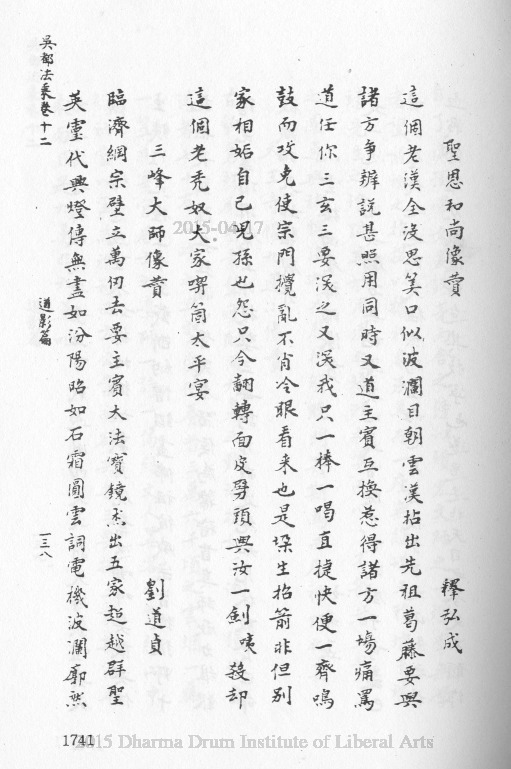 吳都法乘卷十二
道影篇
一三八
聖恩和尚像贊
釋弘成
這個老漢全沒思筭口似波瀾目朝雲漢拈出先祖葛藤要與
諸方爭辦說甚照用同時又道主賓互換惹得諸方一塲痛罵
道任你三玄三要深之又深我只一棒一喝直捷快便一齊鳴
鼓而攻克使宗門攪亂不肖冷眼看来也是垜生招箭非但別
家相妬自己兒孫也怨只今翻轉面皮劈頭與汝一劍咦殺却
這個老禿奴大家喫箇太平宴
三峰大師像贊
劉道貞
臨濟綱宗壁立萬仞去要主賓大法寶鏡杰出五家超越群聖
英靈代興燈傳無盡如汾陽昭如石霜圓雲詞電機波瀾廓然
2015-04-17
1741
2015 Dharma Drum Institute of Liberal Arts